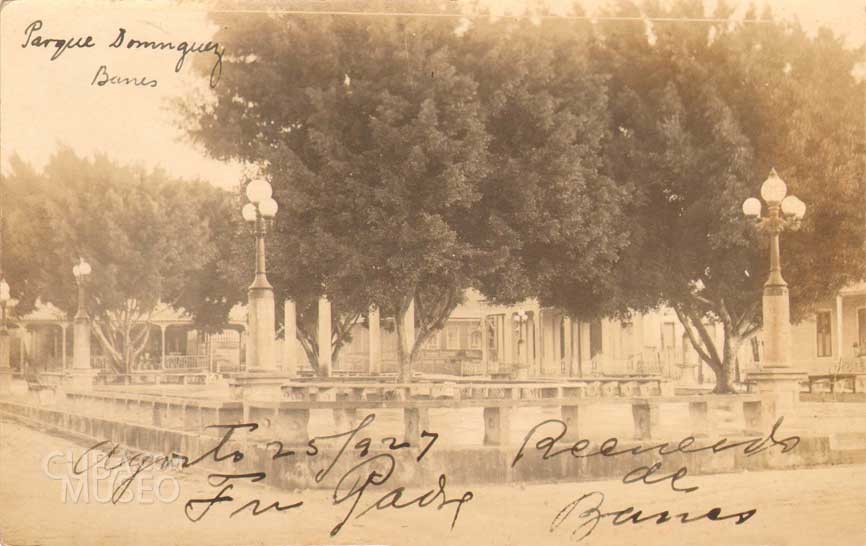 Parque Dominguez
Banes
Agosto 25/927
Tu Padre
Recuerdo
de
Banes
CUBA
MUSEO